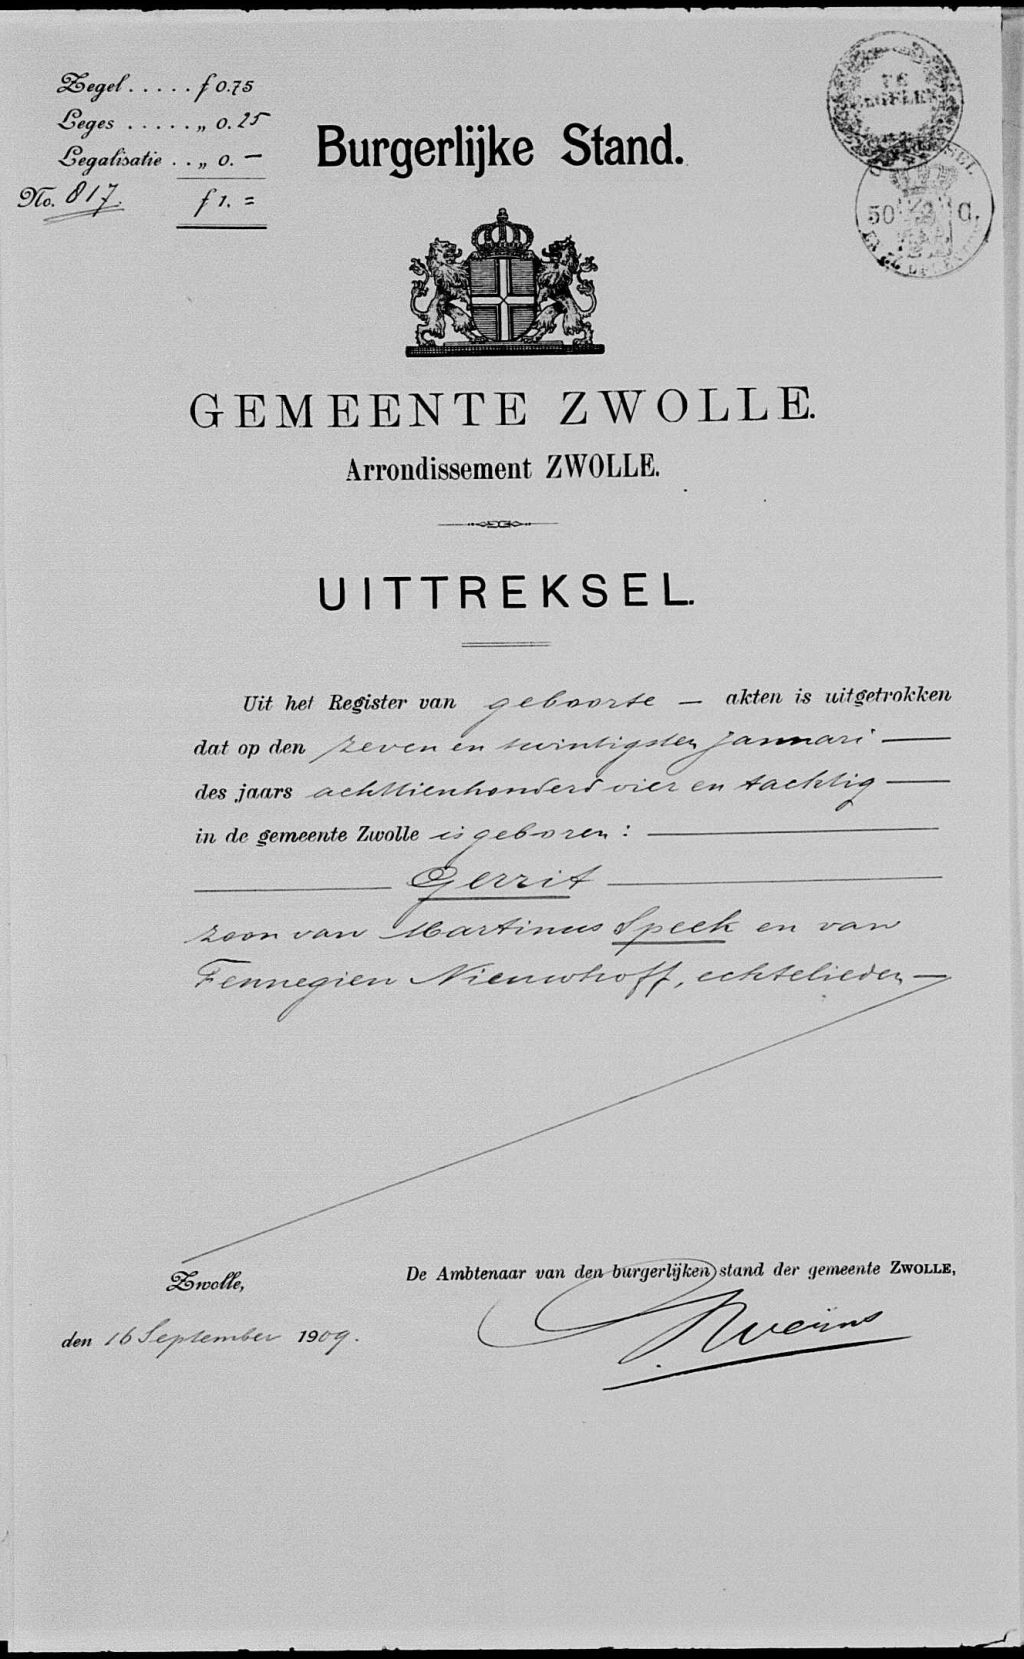 Zegel . . . . . f 0.75
Leges . . . . . „ 0.25
Legalisatie . . „ 0. —
No. 817. f 1. =
Burgerlijke Stand.
50 C.
GEMEENTE ZWOLLE.
Arrondissement ZWOLLE.
UITTREKSEL.
Uit het Register van geboorte — akten is uitgetrokken
dat op den zeven en twintigsten Januari —
des jaars achttienhonderd vier en tachtig —
in de gemeente Zwolle is geboren : —
— Gerrit —
zoon van Martinus Speek en van
Fennegien Nieuwhoff, echtelieden —
Zwolle,
De Ambtenaar van den burgerlijken stand der gemeente ZWOLLE,
den 16 September 1909.